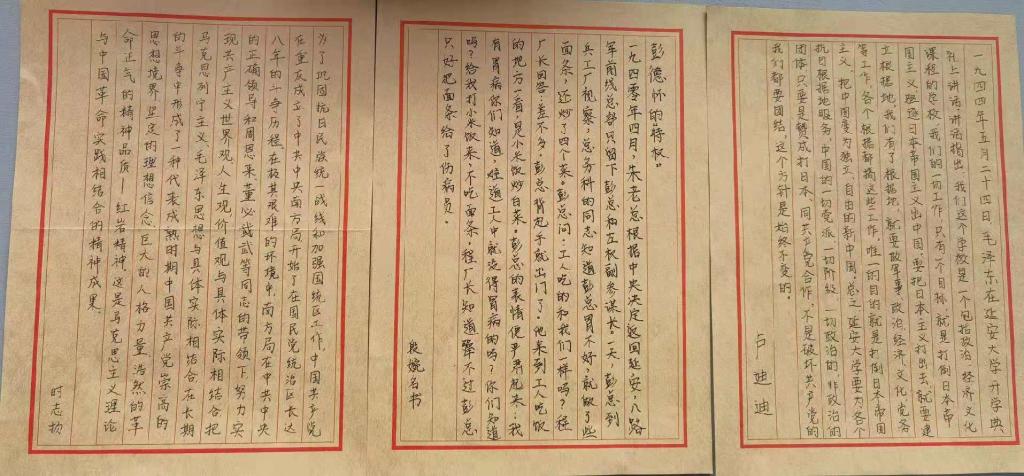 一九四四年五月二十四日 毛泽东在延安大学开学典
礼上讲话,讲话指出 我们这个学校是一个包括政治 经济 文化
课程的学校 我们的一切工作,只有一个目标 就是打倒日本帝
国主义 日本帝国主义出中国 要把日本主义打出去 就要建
立根据地 我们有了根据地 就要做军事 政治 经济 文化 党务
等工作,各个根据都搞这些工作,唯一的目的就是打倒日本帝国
主义 把中国变为独立、自由的新中国,总之 延安大学要为各个
抗日根据地服务,中国的一切党派 一切阶级 一切政治的 非政治的
团体 只要是赞成打日本、同共产党合作,不是破坏共产党的
我们都要团结,这个方针是始终不变的。
卢迪迪
彭德怀的“特权”
一九四零年四月,朱老总根据中央决定返回延安,八路
军前线总部只留下彭总和左权副参谋长。一天,彭总到
兵工厂视察,总务科的同志知道彭总胃不好,就做了些
面条,还炒了四个菜。彭总问:工人吃的和我们一样吗?程
厂长回答:差不多,彭总背起手就出门了。他来到工人吃饭
的地方一看,是小米饭炒白菜。彭总的表情便严肃起来:我
有胃病你们知道,难道工人中就没得胃病的吗?你们知道
吗?给我打小米饭来,不吃面条。程厂长知道犟不过彭总
只好把面条给了伤病员。
段婉名书
为了巩固抗日民族统一战线和加强国统区工作,中国共产党
在重庆成立了中共中央南方局开始了在国民党统治区长达
八年的斗争历程。在极其艰难的环境中,南方局在中共中央
的正确领导和周恩来、董必武等同志的带领下,努力实
现共产主义世界观、人生观、价值观与具体实际相结合,把
马克思列宁主义、毛泽东思想与具体实际相结合,在长期
的斗争中形成了一种代表成熟时期中国共产党崇高的
思想境界、坚定的理想信念、巨大的人格力量、浩然的革
命正气的精神品质——红岩精神。这是马克思主义理论
与中国革命实践相结合的精神成果。
时志扬